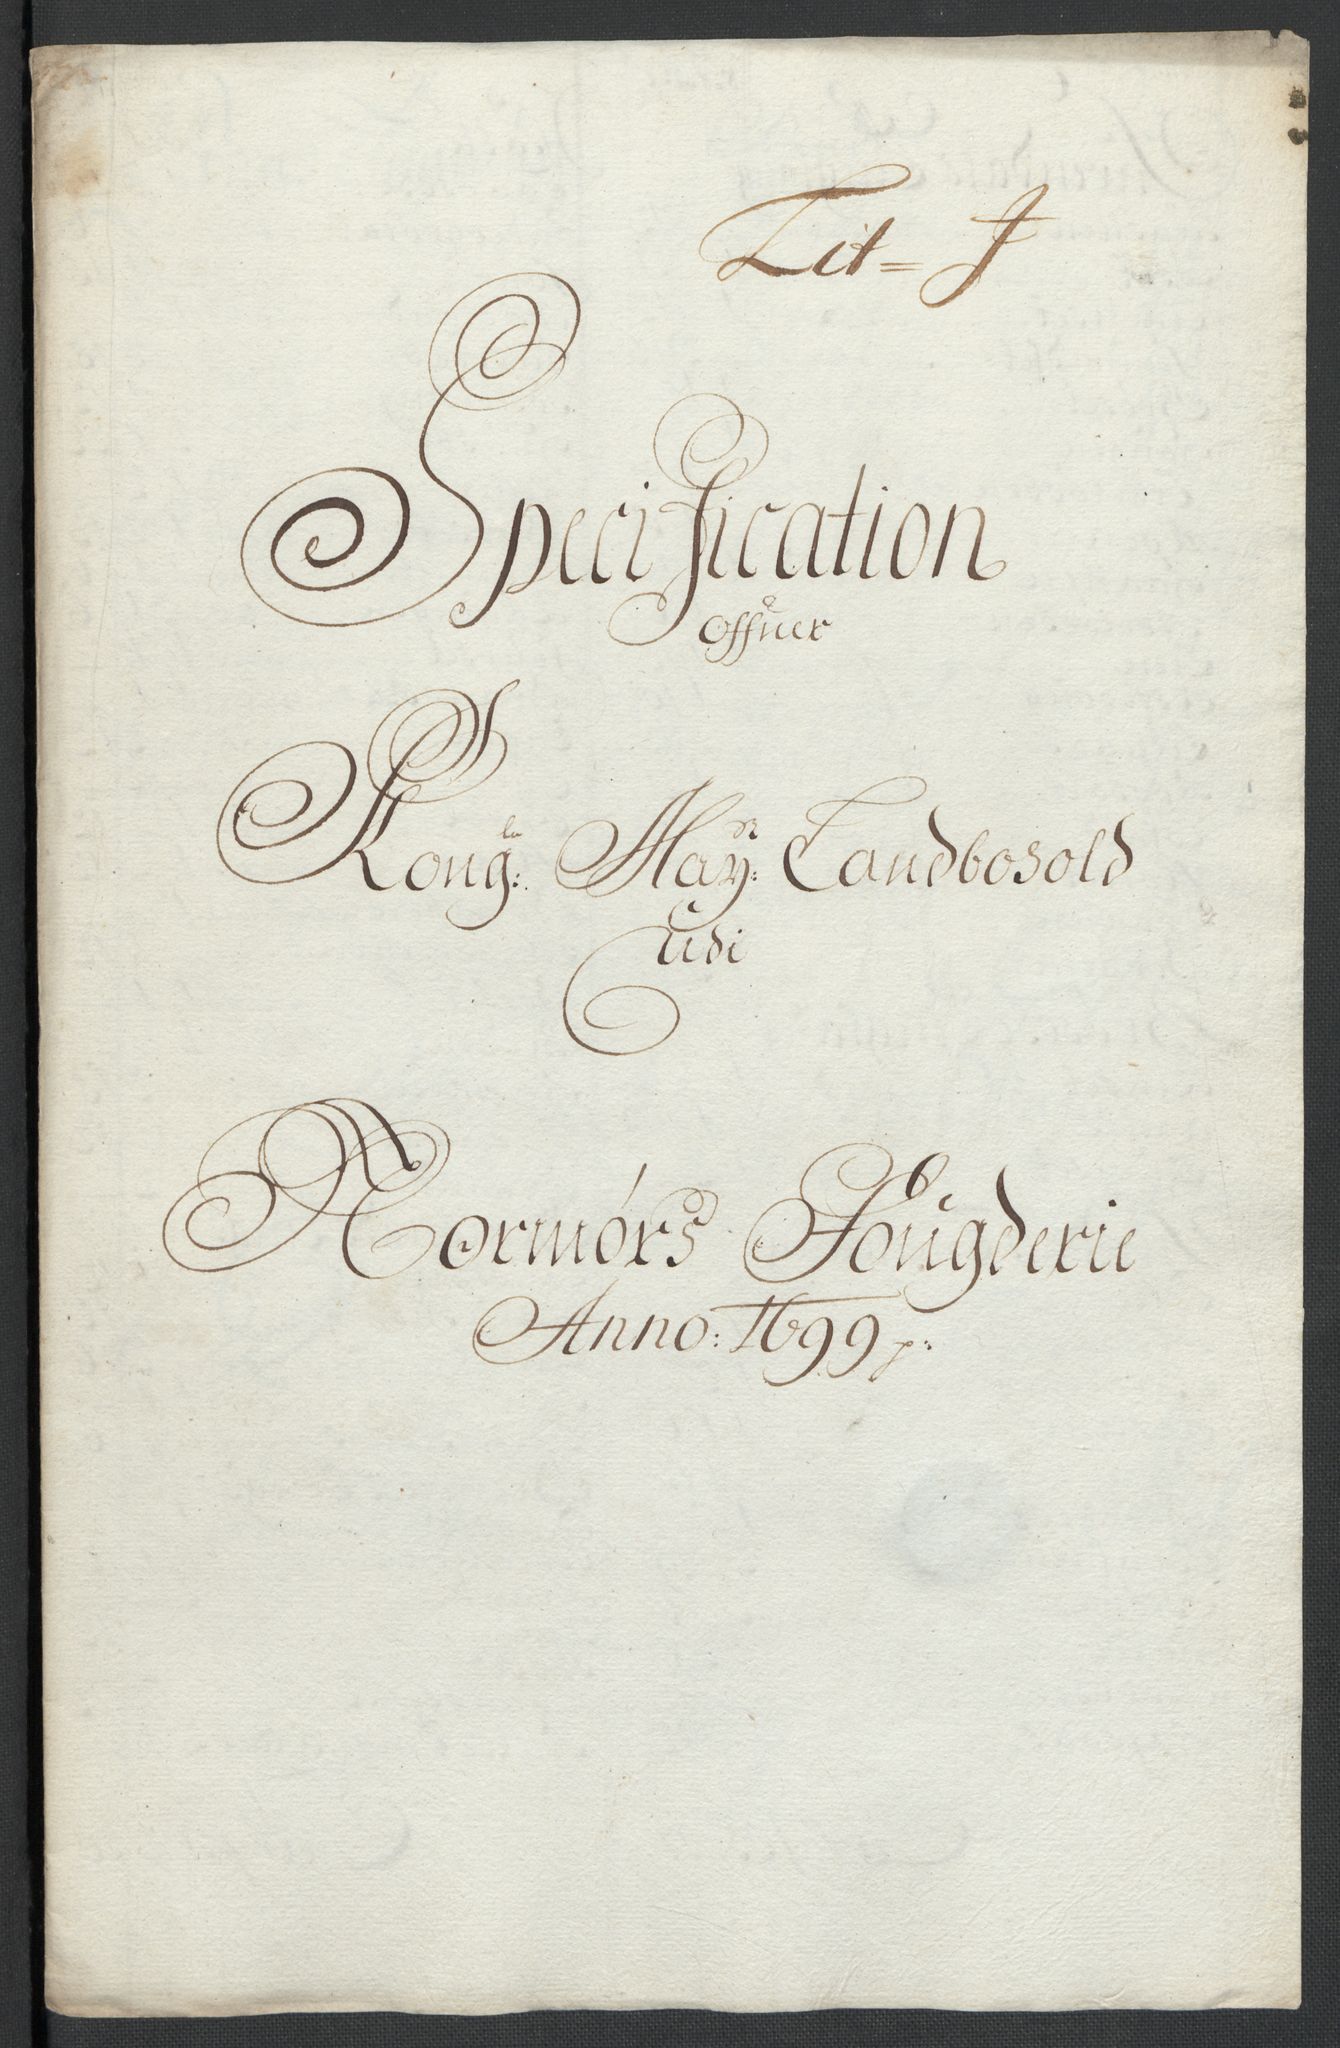 Lit= J
Specification
offuer
Kong: la May: st Landbosold
udi
Normørs Fougderie
Anno: 1699 p: